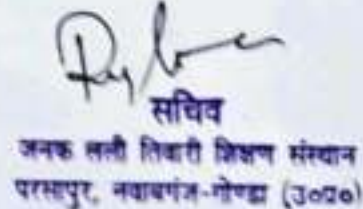 सचिव
जनक लली तिवारी शिक्षण संस्थान
परसापुर, नवाबगंज-गोण्डा (उ०प्र०)